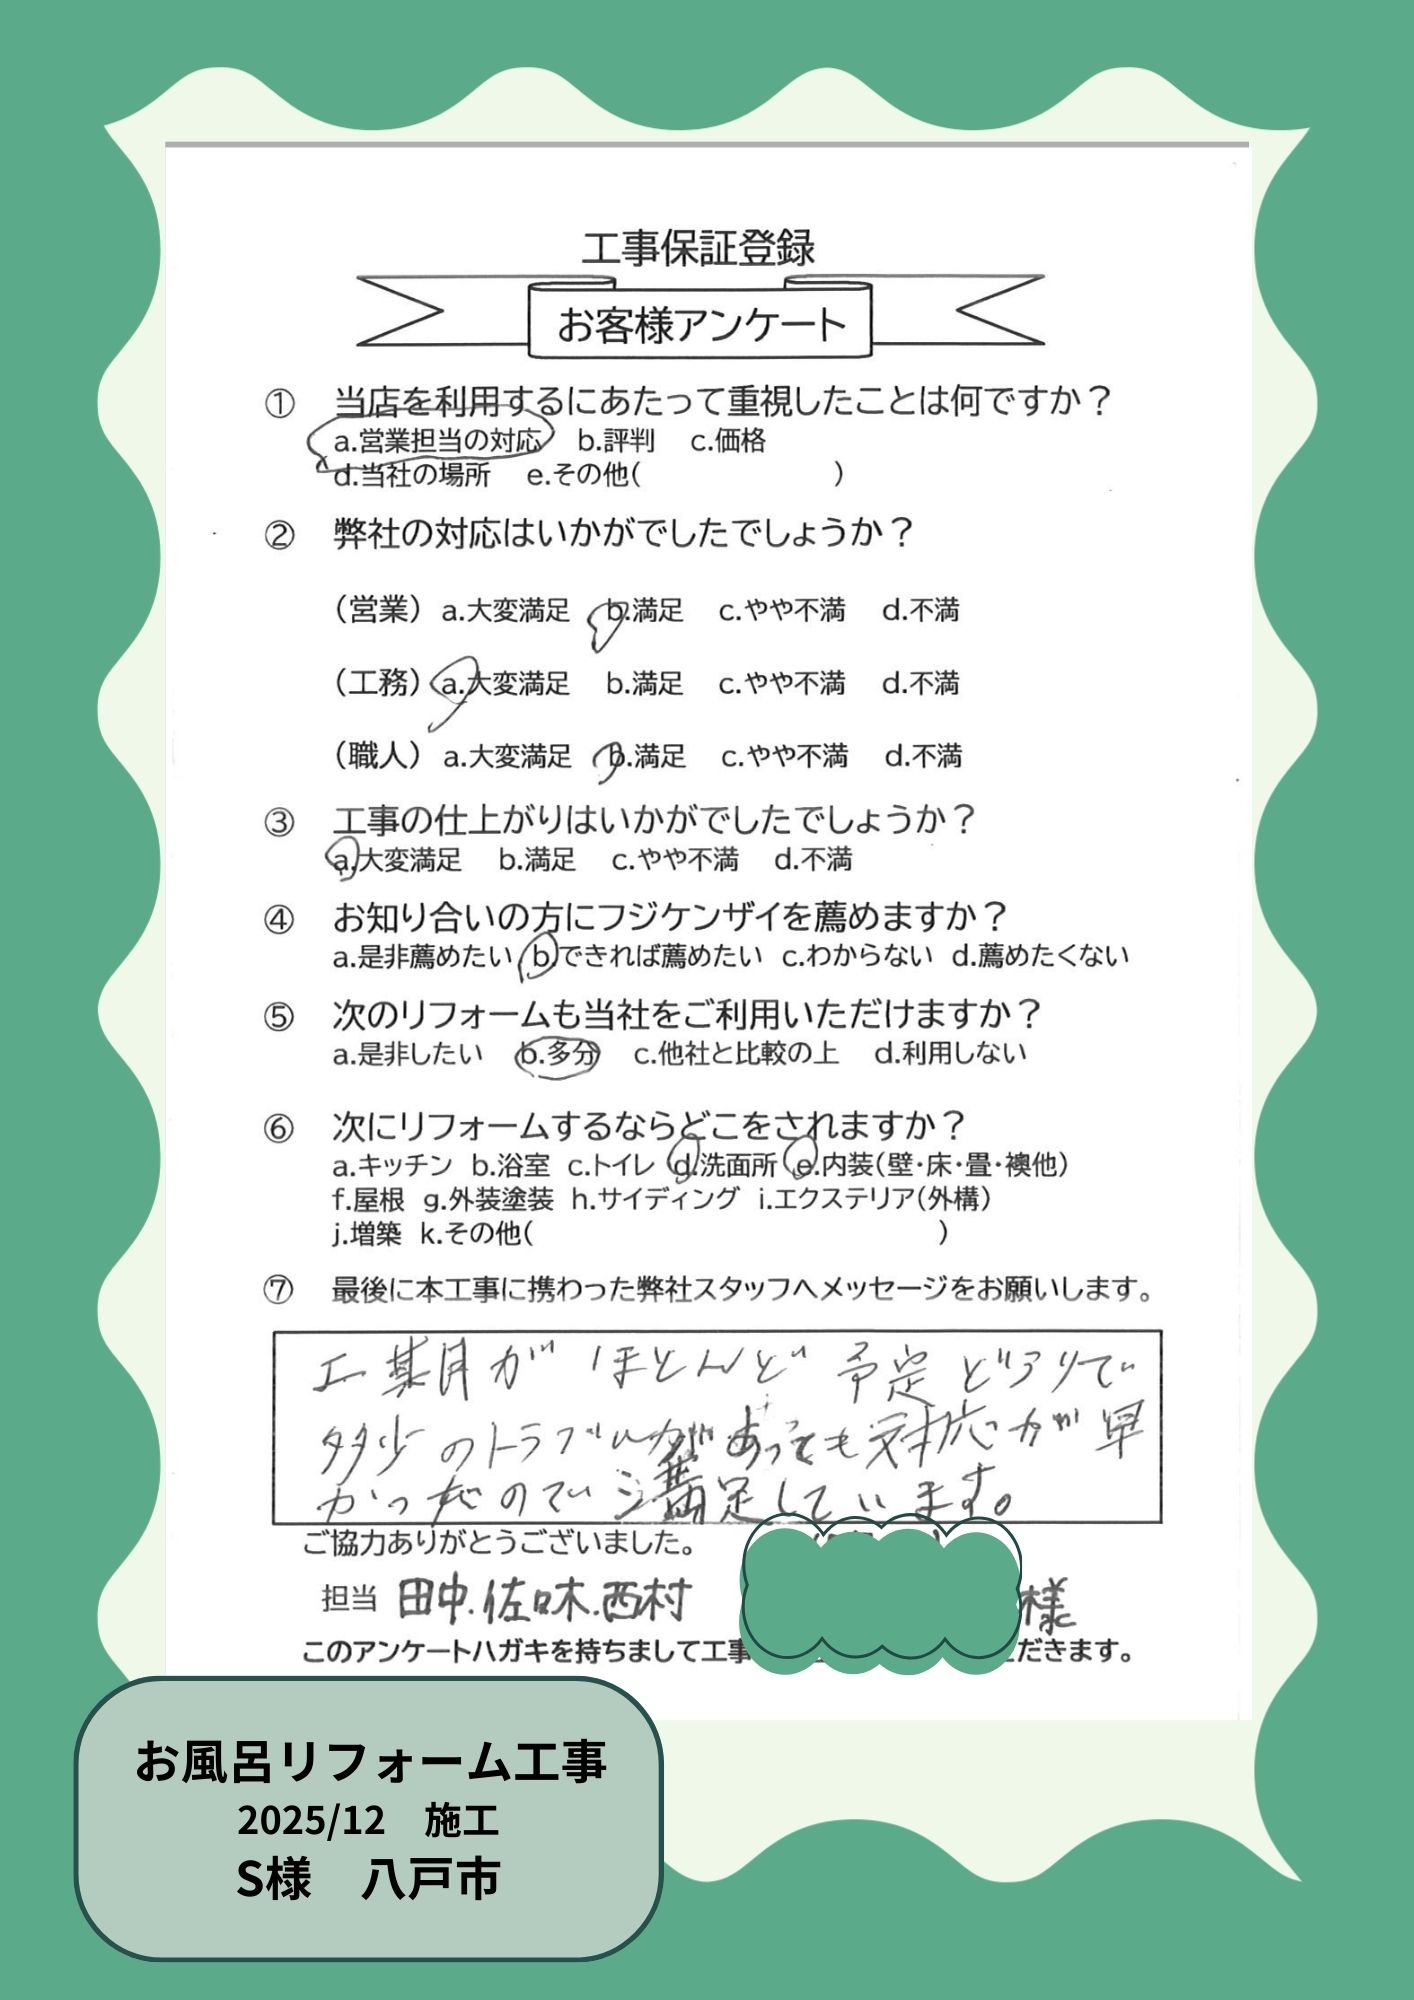 工事保証登録
お客様アンケート
① 当店を利用するにあたって重視したことは何ですか？
a.営業担当の対応 b.評判 c.価格
d.当社の場所 e.その他( )
② 弊社の対応はいかがでしたでしょうか？
（営業）a.大変満足 b.満足 c.やや不満 d.不満
（工務）a.大変満足 b.満足 c.やや不満 d.不満
（職人）a.大変満足 b.満足 c.やや不満 d.不満
③ 工事の仕上がりはいかがでしたでしょうか？
a.大変満足 b.満足 c.やや不満 d.不満
④ お知り合いの方にフジケンザイを薦めますか？
a.是非薦めたい b.できれば薦めたい c.わからない d.薦めたくない
⑤ 次のリフォームも当社をご利用いただけますか？
a.是非したい b.多分 c.他社と比較の上 d.利用しない
⑥ 次にリフォームするならどこをされますか？
a.キッチン b.浴室 c.トイレ d.洗面所 e.内装(壁・床・畳・襖他)
f.屋根 g.外装塗装 h.サイディング i.エクステリア(外構)
j.増築 k.その他( )
⑦ 最後に本工事に携わった弊社スタッフへメッセージをお願いします。
工期がほとんど予定どうりで
多少のトラブルがあっても対応が早
かったので満足しています。
ご協力ありがとうございました。
担当 田中.佐々木.西村 様
このアンケートハガキを持ちまして工事 だきます。
お風呂リフォーム工事
2025/12 施工
S様 八戸市